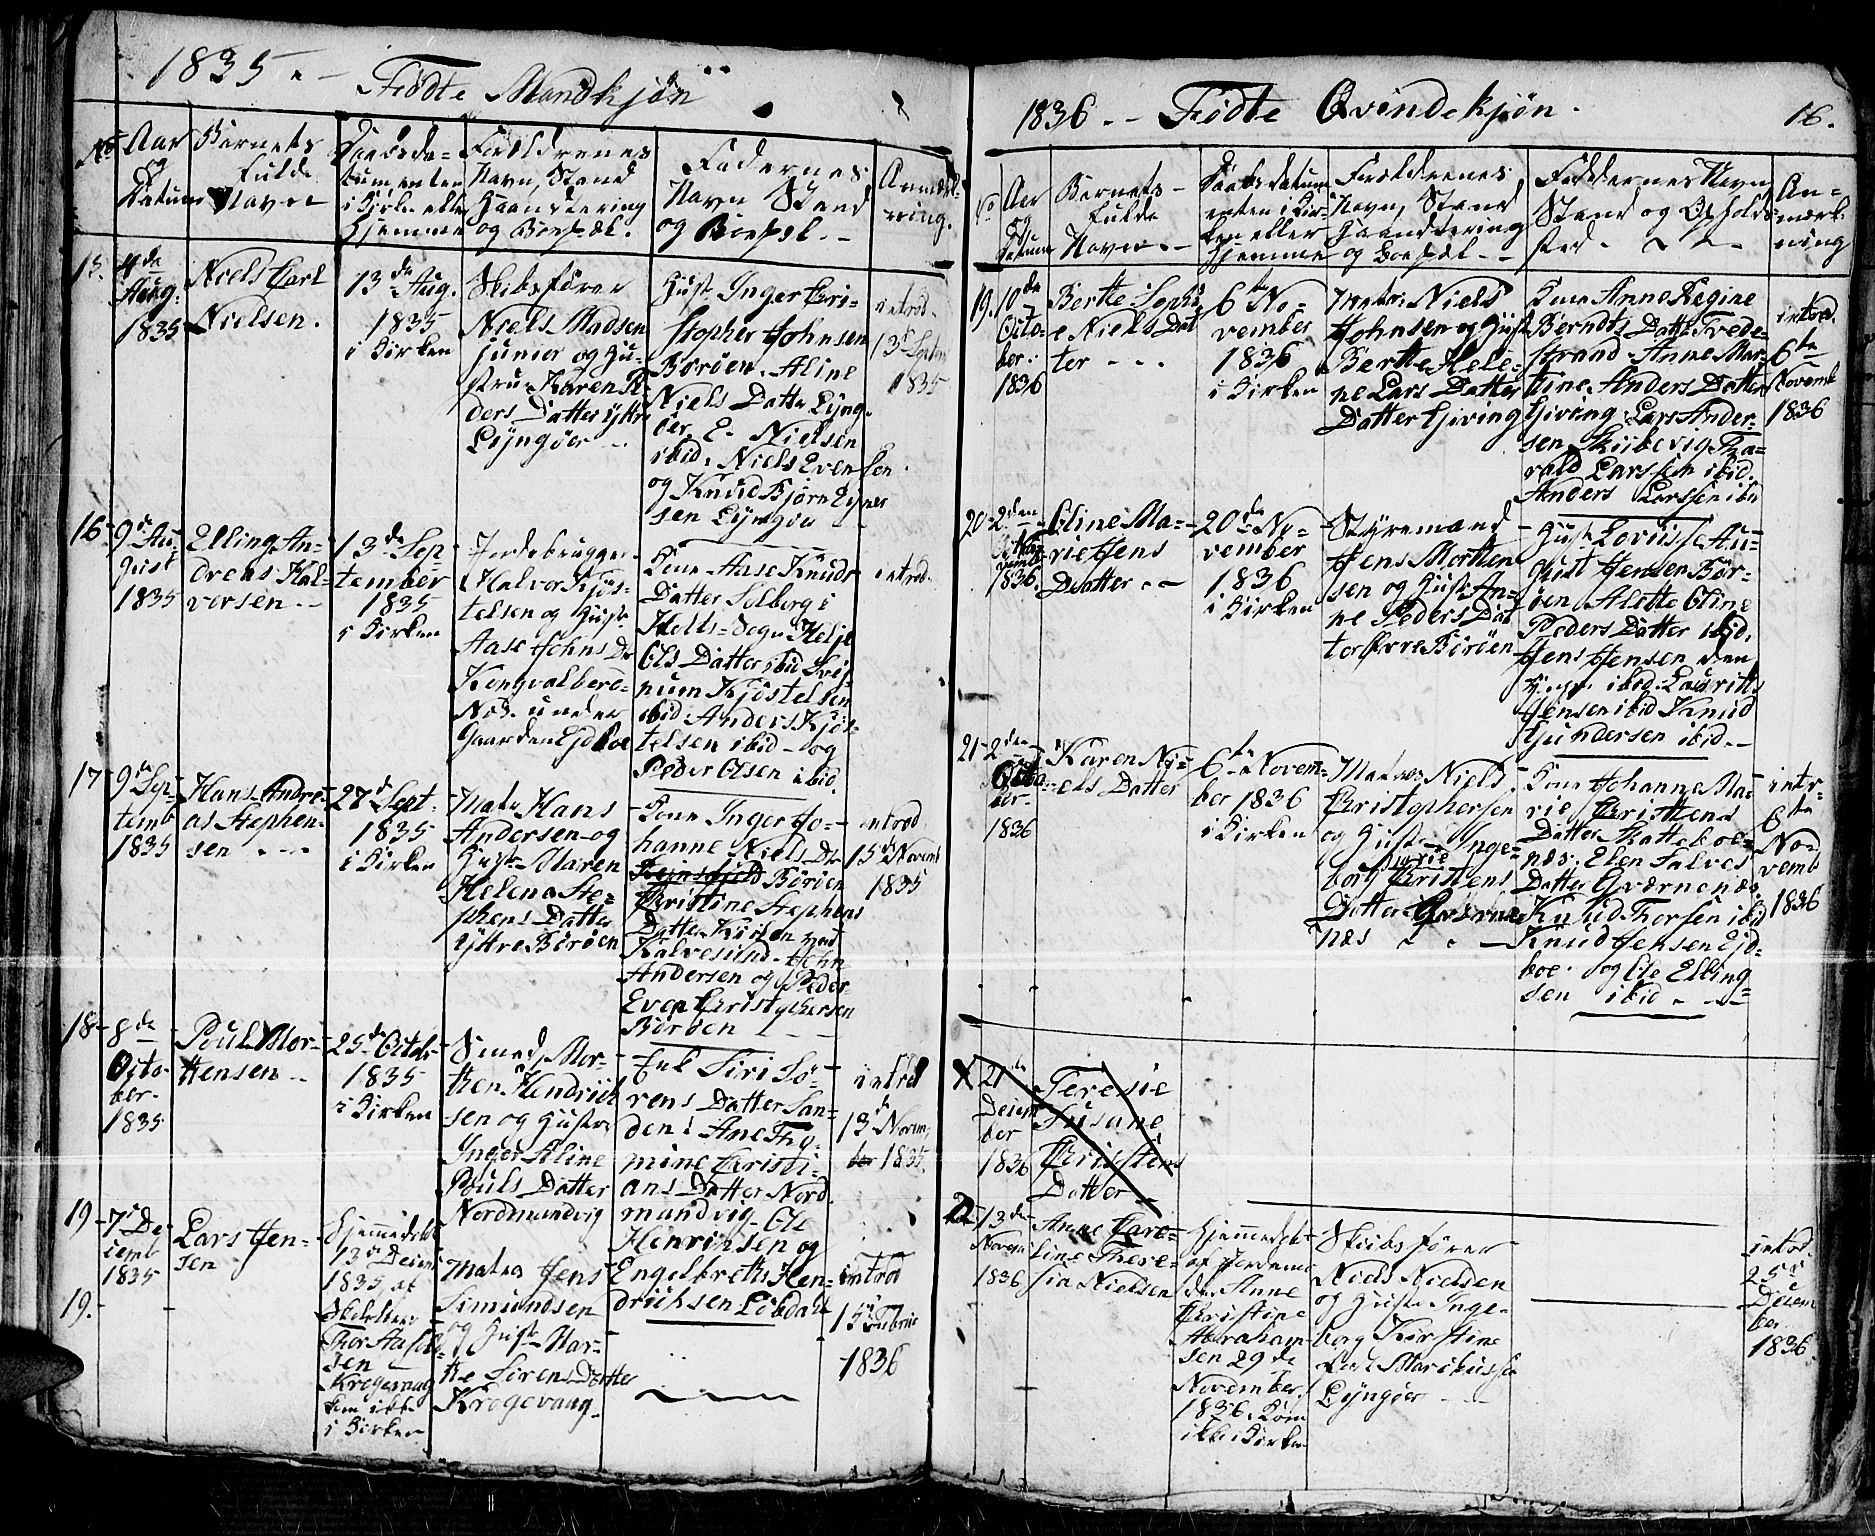 1835. - Fødte Mandkjøn
No
Aar
og
Datum
Barnets
fulde
Navn
Daabsda=
tum enten
i Kirke eller
Hjemme
Forældrenes
Navn, Stand
Haandtering
og Boepæl.
Faddernes
Navn Stand
og Boepæl. -
Anmærk-
ning.
15.
4de
Aug.
1835
Niels Carl
Nielsen.
13de Aug.
1835
i Kirken
Skibsfører
Niels Madsen
junior og Hu-
stru Karen
ders Datter yttre
Lyngøer
Hust. Inger Cri-
stopher Johnsen
Borøen. Aline
Niels Datter Lyng-
øer. E. Nielsen
ibid. Niels Evensen
og Knud Bjørn
sen Lyngøer
introd.
13de
1835
16
9de Au-
gust
1835
Elling An=
dreas Hal-
versen. -
13de Sep
tember
1835
i Kirken
Halvor Kjøs-
telsen og Hust.
Aase Johns Dr
under
Gaarden Ejdboe
Kone Aase Knuds
Datter Solberg i
Holts=Sogn
Ols Datter ibid
num Kjøstelsen
ibid. Anders Kjøs-
telsen ibid - og
Peder Olsen ibid.
introd.
17
9de Sep=
temb
1835
Hans Andre-
as Stephen-
sen
27de Sept.
1835
i Kirken
Matr Hans
Andersen og
Hust. Maren
Helena Ste=
phens Datter
Yttre Borøen
Kone Inger Jo-
hanne Niels Dr
Borøen
Christine Stephens
Datter
Kalvesund. John
Andersen og Peder
Even Christophersen
Borøen
introd.
15de Novemb
1835
18
8de
Octo-
ber.
1835
Poul Mor-
tensen
25de Octobr
1835
i Kirken
Smed, Mor-
ten Hendrick
sen og Hustru
Inger Aline
Pouls Datter
Nordmundvig
Enk Siri Sø-
rens Datter San-
den: Ane
mine Christi-
ans Datter Nord
mundvig. Ole
Henrihsen og
Engelbreth Hen-
drichsen Løvdal
introd
13de Novem-
ber 1835.
19
7de De
cemb
1835
Lars Jen-
sen
Hjemmedøbt
13de Decemb
1835, af
Skolelærer
Thor Aasold-
sen
Krogevaag
kom ikke
i Kirken
Matros Jens
Simundsen
og Hust. Mar-
the Sørens Datter
Krogevaag.
introd
15de Febru
1836
19.
1836. - Fødte Qvindekjøn.
16.
No
Aar
og
Datum
Barnets -
fulde
Navn. -
Daabsdatum
enten i Kir-
ken eller
Hjemme
Forældrenes
Navn, Stand
Haandtering
og Boepæl -
Faddernes Navn
Stand og Opholds-
sted -
An-
mærk-
ning
19.
10de
Octo-
ber.
1836
Berthe Sophi
e Niels Dat
ter - - -
6te No-
vember
1836
i Kirken
Matr: Niels
Johnsen og Hust
Berthe Hele-
ne Lars Datter
Datter Gjving
Kone Anne Regine
Berndts Datter Frede-
strand. Anne Mar-
tine Anders Datter
Gjving. Lars Ander-
sen Skibevig
vald Larssen ibid.
Anders Larssen ibid
introd.
6te
Novemb
1836
20
2den
1836.
Oline Ma=
rie Jens
Datter. -
20de No-
vember
1836
i Kirken
Styremand
Jens Morthen
sen og Hust. An-
ne Peders Dat
ter Øvre Borøen
Hust. Lovisse Au-
gust Jensen Bor-
øen Alette Oline
Peders Datter ibid.
Jens Jensen den
ibid. Lauritts
Jensen ibid Knud
Gundersen ibid. -
21
2den
Octo-
ber.
1836
Karen Ni-
els Datter
6te Novem=
ber 1836
i Kirken
Matros Niels
Christophersen
og Hust. Inge-
borg Marie Christens
Datter Qværne
næs
Kone Johanne Ma-
rie Christens
Datter Hatteboe-
næs. Elen Salves
Datter Qværnenæs.
Knud Thorsen ibid
Knud Jensen Ejd=
boe. og Ole Elling
sen ibid. - -
intr-
6te
No-
vemb
1836
21de
Decem
ber
1836
Teresie
Susane
Christens
Datter -
13de
Novem
1836
Anne Caro-
line There-
sia Nielsen
Hjemmedøbt
af Jordemo
der Anne
Christine
Abraham-
sen 29de
November.
1836. kom
ikke i Kirken
Skibsfører
Niels Nielsen
og Hust. Inge-
borg Kirstine
Lyngøer
introd.
25de
Decem
ber.
1836.